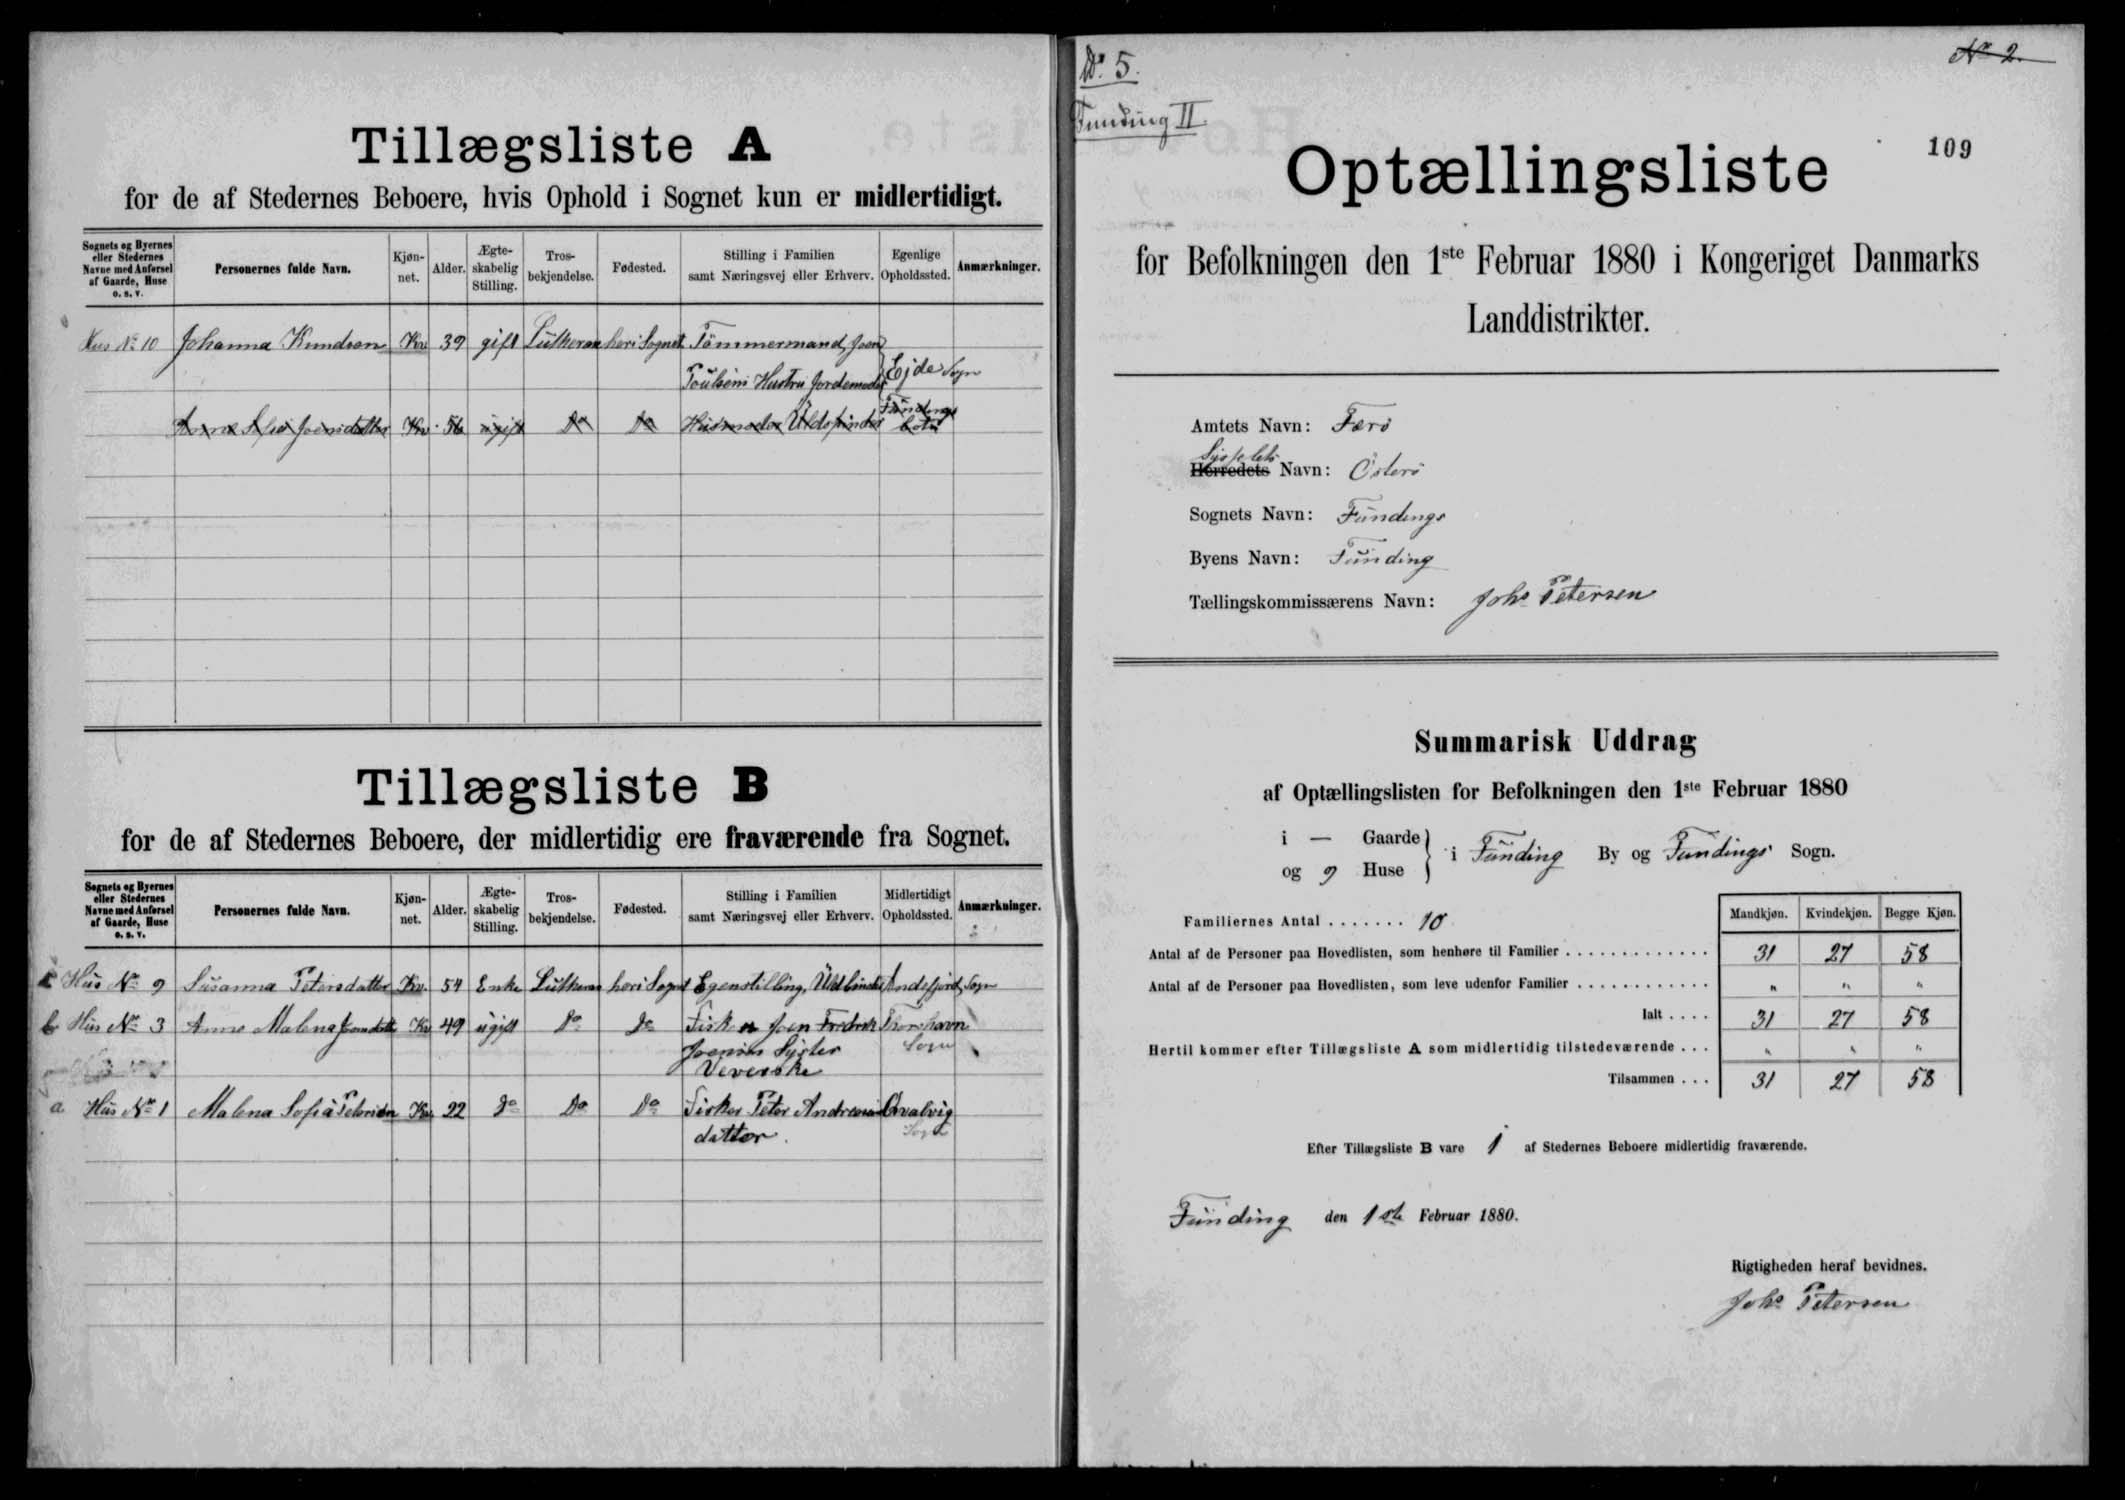 Tillægsliste A
for de af Stedernes Beboere, hvis Ophold i Sognet kun er midlertidigt.
Sognets og Byernes eller Stedernes Navne med Anførsel af Gaarde, Huse o. s. v. Personernes fulde Navn. Kjøn-net. Alder. Ægte-skabelig Stilling. Tros-bekjendelse. Fødested. Stilling i Familien samt Næringsvej eller Erhverv. Egenlige Opholdssted. Anmærkninger.
Hus No 10 Johanna Kv. 39 gift Luthersk her i Sognet Tömmermand Joen
Poulsens Hustru Jordemoder Ejde Sogn
Kv. 56 ugift Do Do
Tillægsliste B
for de af Stedernes Beboere, der midlertidig ere fraværende fra Sognet.
Sognets og Byernes eller Stedernes Navne med Anførsel af Gaarde, Huse o. s. v. Personernes fulde Navn. Kjøn-net. Alder. Ægte-skabelig Stilling. Tros-bekjendelse. Fødested. Stilling i Familien samt Næringsvej eller Erhverv. Midlertidigt Opholdssted. Anmærkninger.
c Hus No 9 Susanna Petersdatter Kv. 54 Enke Luthersk her i Sognet Egenstilling, Andefjord Sogn
b Hus No 3 Anne Malena Joensdatter Kv 49 ugift Do Do Fisker Joen Fredrik Thorshavn
Joensens Syster Sogn
Veverske
a Hus No 1 Malena Sofia Petersen Kv 22 Do Do Do Fisker Peter Andreasens Qvalvig
datter. Sogn
No 5.
Funding II
No 2.
109
Optællingsliste
for Befolkningen den 1ste Februar 1880 i Kongeriget Danmarks
Landdistrikter.
Amtets Navn: Færö
Sysselets
Herredets Navn: Österö
Sognets Navn: Fundings
Byens Navn: Funding
Tællingskommissærens Navn: Johs Petersen
Summarisk Uddrag
af Optællingslisten for Befolkningen den 1ste Februar 1880
i — Gaarde
og 9 Huse } i Funding By og Fundings Sogn.
Mandkjøn. Kvindekjøn. Begge Kjøn.
Familiernes Antal . . . . . . . 10
Antal af de Personer paa Hovedlisten, som henhøre til Familier . . . . . . . . . . . . . 31 27 58
Antal af de Personer paa Hovedlisten, som leve udenfor Familier . . . . . . . . . . . . " " "
Ialt . . . . 31 27 58
Hertil kommer efter Tillægsliste A som midlertidig tilstedeværende . . . " " "
Tilsammen . . . 31 27 58
Efter Tillægsliste B vare 1 af Stedernes Beboere midlertidig fraværende.
Funding den 1ste Februar 1880.
Rigtigheden heraf bevidnes.
Johs Petersen